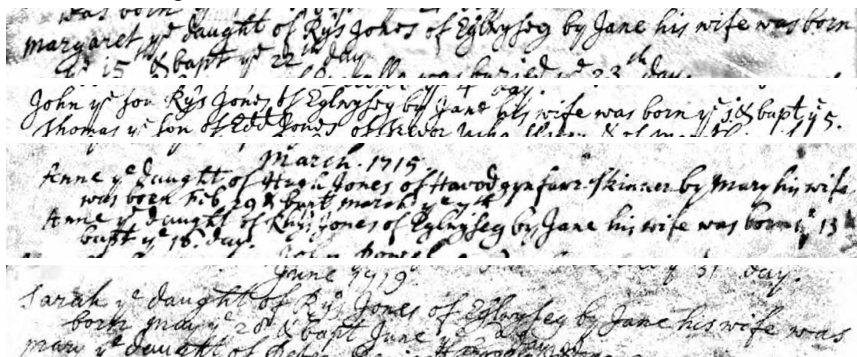 was born
margaret ye daught of Rys Jones of Eglwyseg by Jane his wife was born
ye 15th & bapt ye 22th day
was buried ye 23th day.
4 day.
John ye son Rys Jones of Eglwyseg by Jane his wife was born ye 1. & bapt ye 5.
Thomas ye son of Edd Jones of
March. 1715
Anne ye daught of Hugh Jones of Havodgynfawr skinner by Mary his wife
was born Feb 29 & bapt march ye 4
Anne ye daught of Rhys Jones of Eglwyseg by Jane his wife was born ye 13
bapt ye 16. day.
June 1719
ye 31 day.
Sarah ye daught of Rys Jones of Eglwyseg by Jane his wife was
born may ye 28 & bapt June ye
mary ye daught of Peter